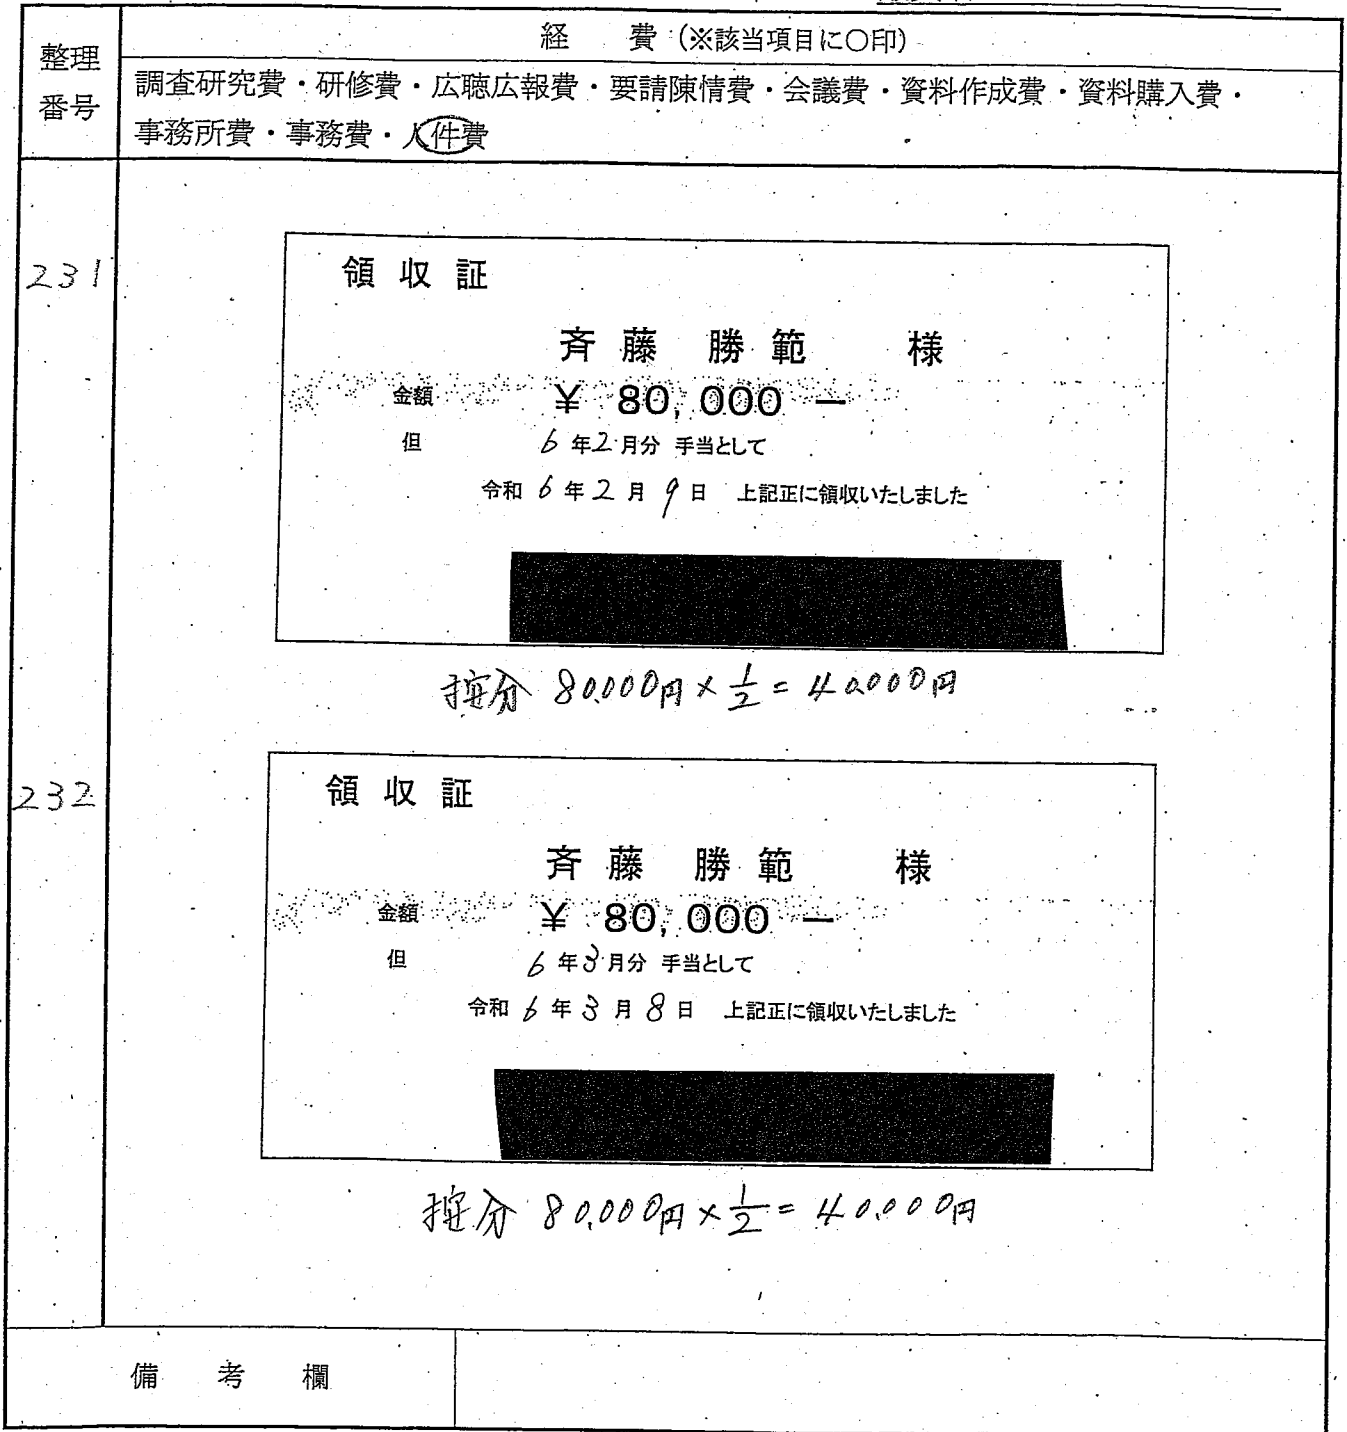 整理番号
経 費 (※該当項目に〇印)
調査研究費・研修費・広聴広報費・要請陳情費・会議費・資料作成費・資料購入費・
事務所費・事務費・人件費
231
領収証
斉藤 勝範 様
金額 ¥ 80,000 ―
但 6年2月分 手当として
令和6年2月9日 上記正に領収いたしました
按分 80,000円×1/2=40,000円
232
領収証
斉藤 勝範 様
金額 ¥ 80,000 ―
但 6年3月分 手当として
令和6年3月8日 上記正に領収いたしました
按分 80,000円×1/2=40,000円
備考欄